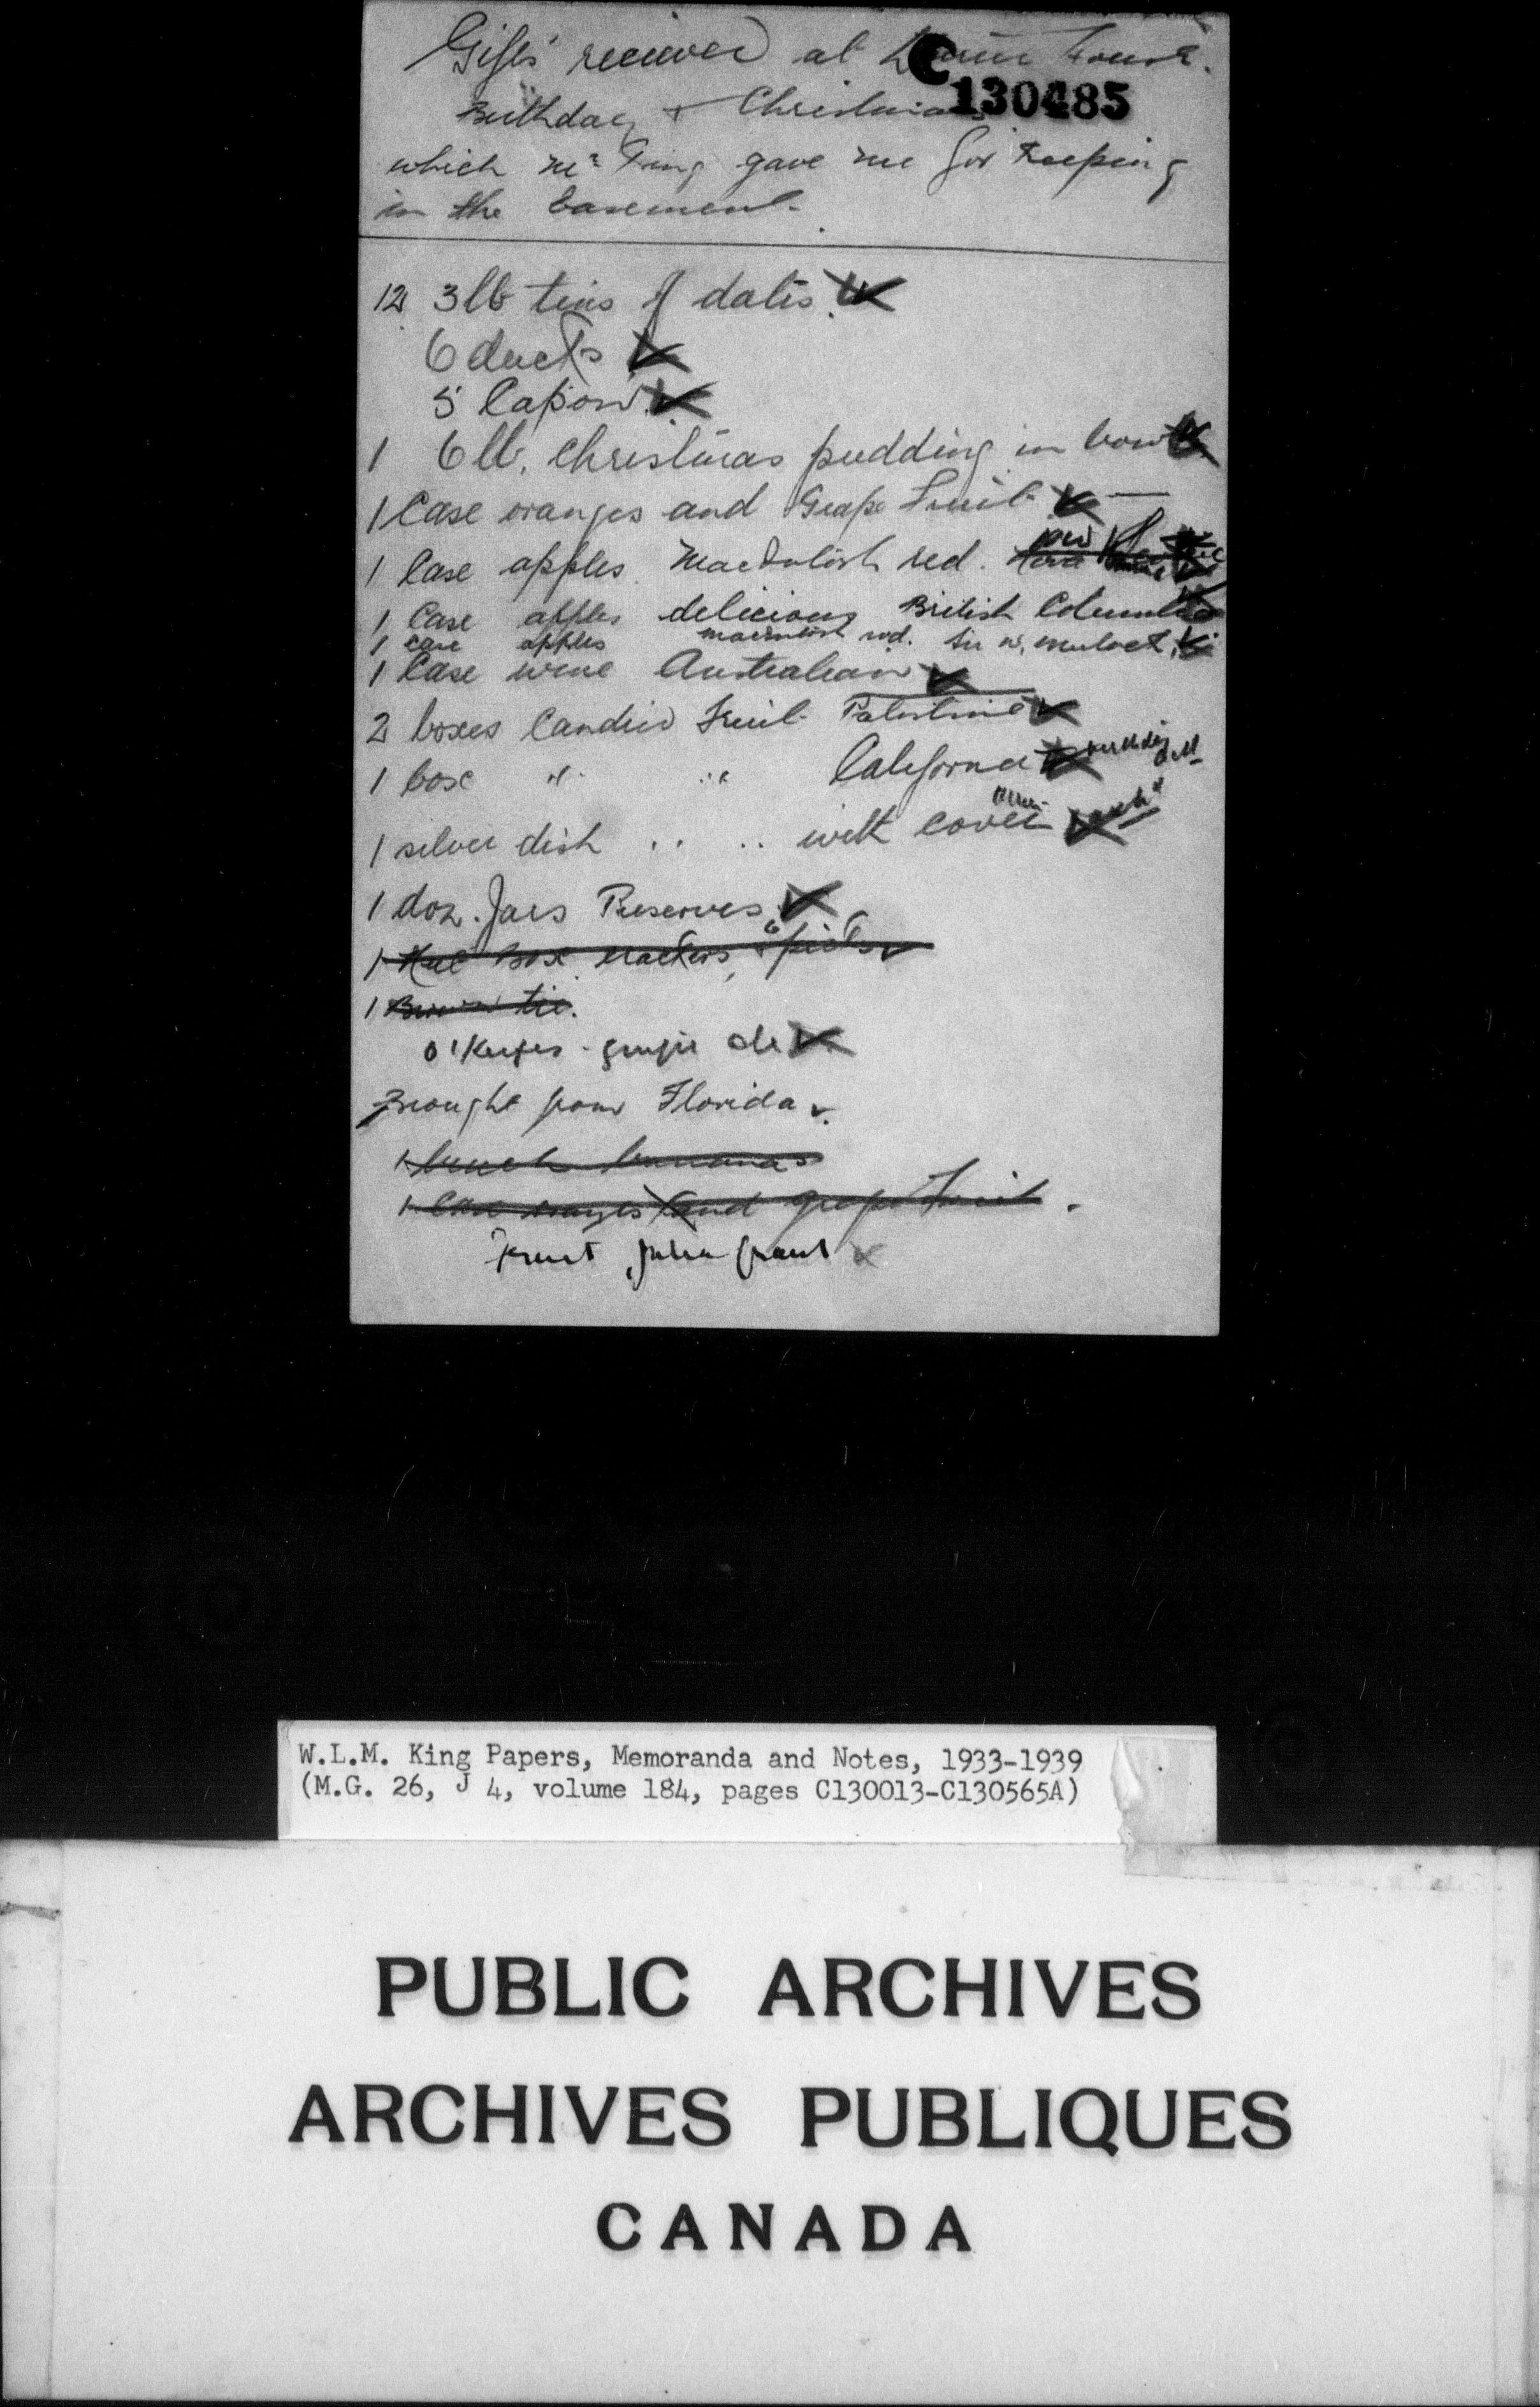 Gifts recieved at Laurier House.
C
130485
Birthday & Christmas
which Mr King gave me for keeping
in the basement.
12 3 lb tins of dates.
6 ducks
5 Capons.
1 6 lb. Christmas pudding in bowl
1 Case oranges and Grape Fruit
1 Case apples MacIntosh red.
1 Case apples delicious British Columbia
1 case apples macintosh red. Sir W. Mulock.
1 Case wine Australian
2 boxes Candied Fruit Palestine
1 box " " California
1 silver dish .. .. with cover
1 doz. Jars Preserves
1 box crackers,
1 Brown tie.
O'Keefes - ginger ale
Brought from Florida
1 bunch bananas
1 Case oranges and grape Fruit.
Fruit
W.L.M. King Papers, Memoranda and Notes, 1933-1939
(M.G. 26, J 4, volume 184, pages C130013-C130565A)
PUBLIC ARCHIVES
ARCHIVES PUBLIQUES
CANADA